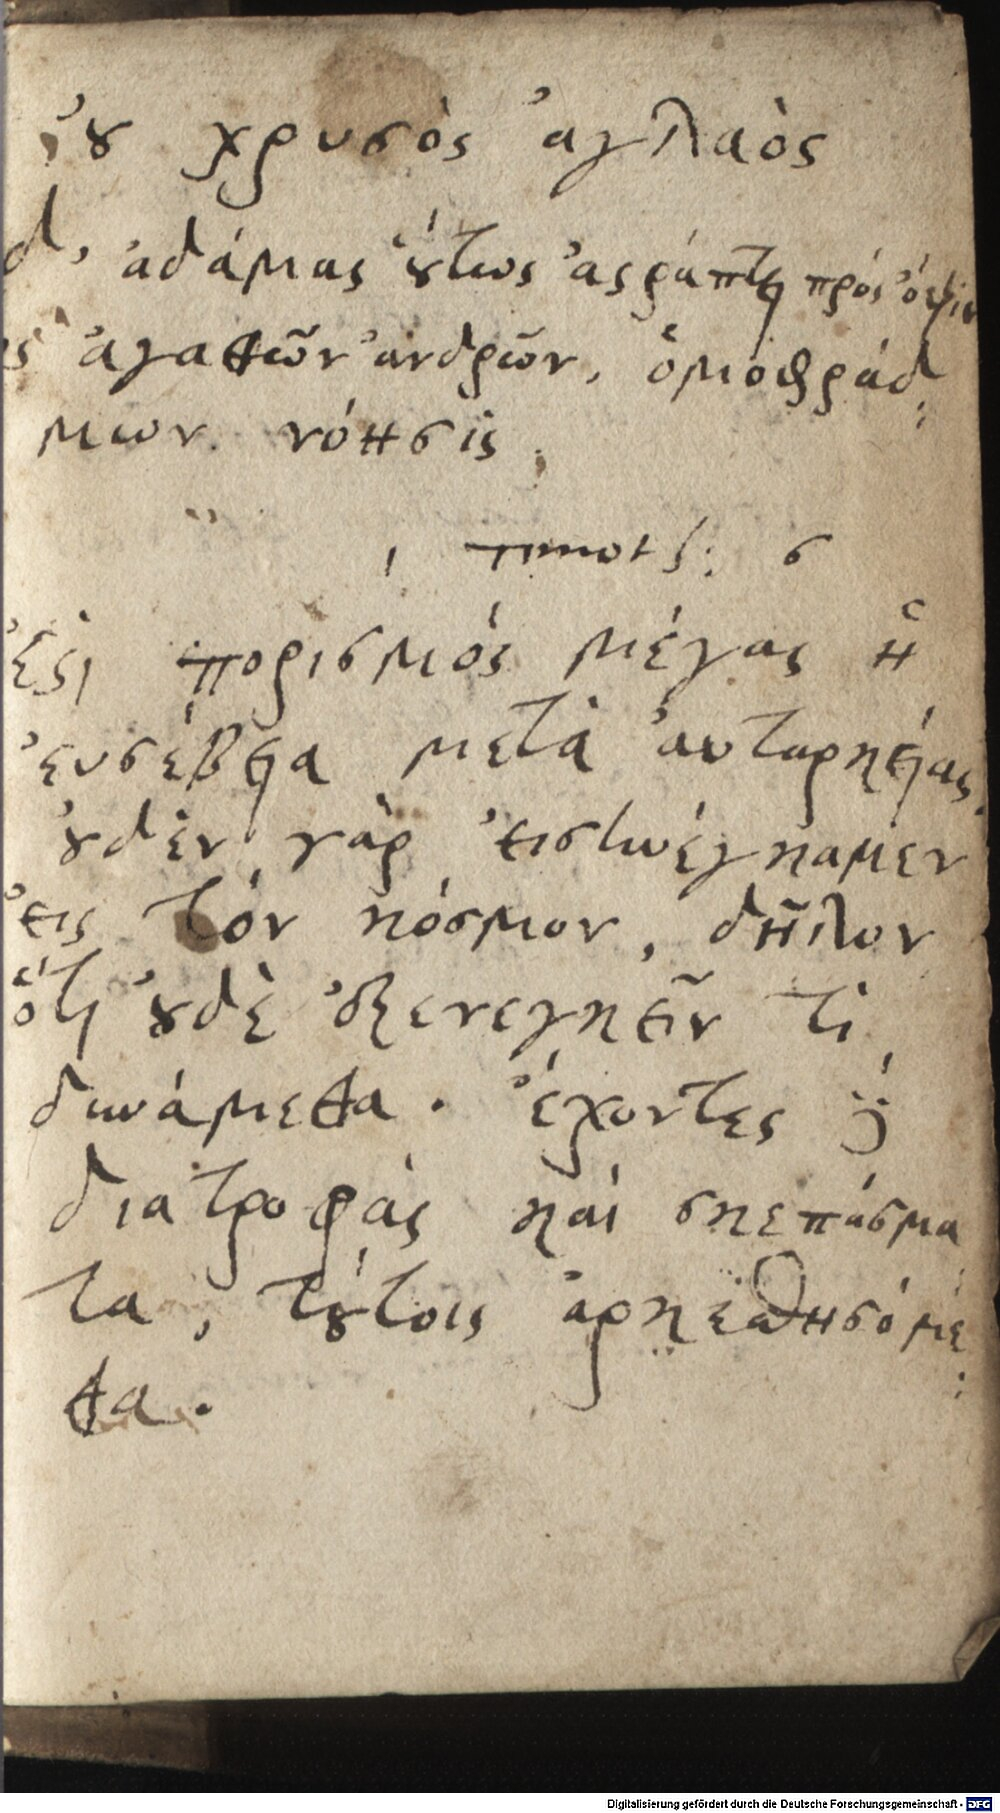 ȣ̓ χρυσὸς ἀγλαὸς
ἀδάμας ȣ̔́τως ἀϛράπτει πρός ὄψιν
ὡς ἀγαθῶν ἀνδρῶν, ὁμοφράδ
μων νόησις.
1 timoth: 6
Ἔϛι πορισμός μέγας ἡ
ἐυσέβεια μετὰ ἀυταρκείας.
ȣ̓δὲν γὰρ ἐισηνέγκαμεν
ἐις τόν κόσμον, δῆλον
ὅτι ȣ̓δὲ ἐξενεγκεῖν τὶ
δυνάμεθα. ἔχοντες δὲ
διατροφὰς καὶ σκεπάσμα
τα, τȣ́τοις ἀρκεσθησόμε
θα.
Digitalisierung gefördert durch die Deutsche Forschungsgemeinschaft - DFG